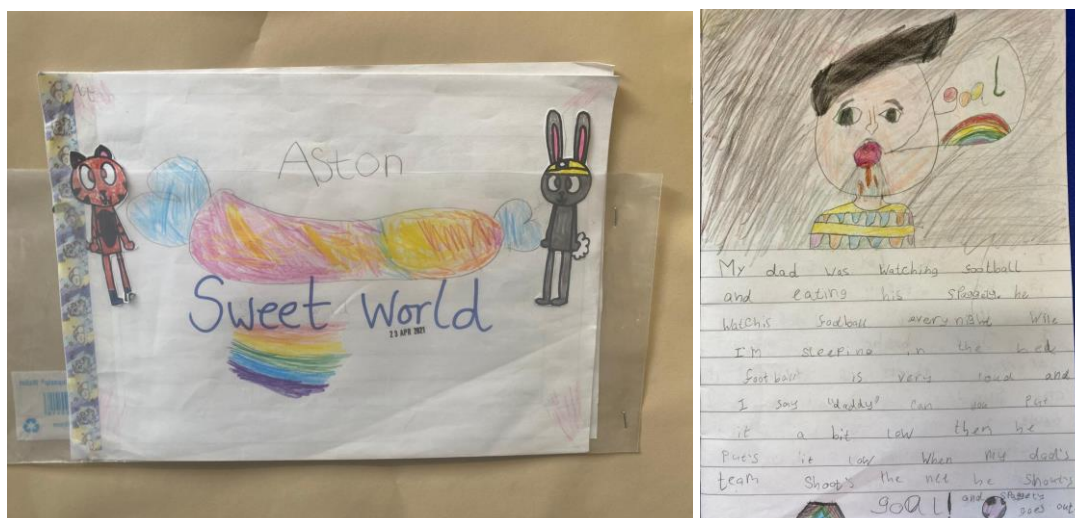 Aston
Sweet World
23 APR 2021
goal
My dad was watching football
and eating his he
watchis football every night
I'm sleeping in the bed
football is very loud and
I say "daddy" can you put
it a bit low then he
put's it low when my dad's
team shoot's the net he shout's
GOAL! and goes out